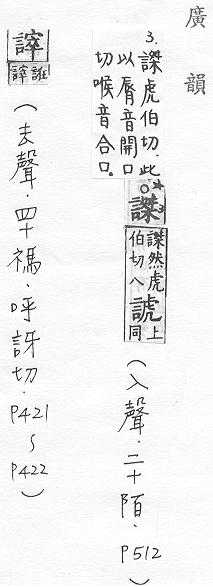 廣韻
3.謋虎伯切.此
以脣音開口
切喉音合口。
謋
謋然虎
伯切八
諕
上
同
(入聲.二十陌.P512)
(去聲.四十禡.呼訝切.P421~P422)